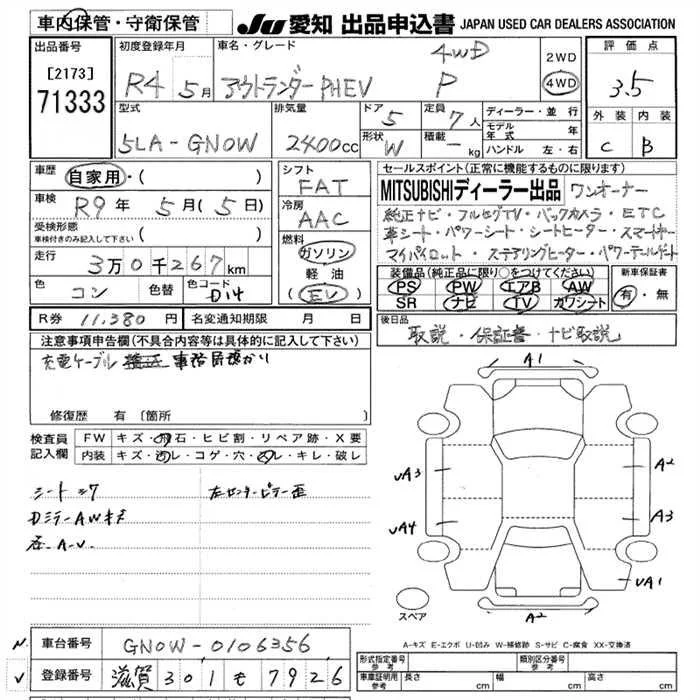 車内保管・守衛保管 JU 愛知 出品申込書 JAPAN USED CAR DEALERS ASSOCIATION
出品番号 [2173] 71333
初度登録年月 R4 5月
車名・グレード アウトランダーPHEV 4WD P
2WD 4WD
評価点 3.5
外装 C 内装 B
型式 5LA-GN0W
排気量 2400cc
ドア 5 形状 W
定員 7人 積載 - kg
ディーラー・並行
モデル年式 年
ハンドル 左・右
車歴 自家用・( )
車検 R9年 5月(5日)
受検形態 車検付きのみ記入して下さい ( )
走行 3万0千267km
色 コン 色替 色コード D14
シフト FAT
冷房 AAC
燃料 ガソリン 軽油 (EV)
セールスポイント(正常に機能するものに限ります)
MITSUBISHIディーラー出品 ワンオーナー
純正ナビ・フルセグTV・バックカメラ・ETC
革シート・パワーシート・シートヒーター・スマートキー
マイパイロット・ステアリングヒーター・パワーテールゲート
装備品(純正品に限り○をつけてください) 新車保証書
PS PW エアB AW 有・無
SR ナビ TV カワシート
R券 11,380円 名変通知期限 月 日
後日品 取説・保証書・ナビ取説
注意事項申告欄(不具合内容等は具体的に記入して下さい)
充電ケーブル 事務局預かり
修復歴 有 〔箇所 〕
検査員記入欄 FW キズ・飛石・ヒビ割・リペア跡・X要
内装 キズ・汚レ・コゲ・穴・スレ・キレ・破レ
シートシワ 左センターピラー歪
DミラーAWキズ
A-U
A1
UA3 A2
UA4 A3
UA1
スペア A2
A-キズ E-エクボ U-凹み W-補修跡 S-サビ C-腐食 XX-交換済
車台番号 GN0W-0106356
登録番号 滋賀 301 も 7926
形式指定番号 参考 類別区分番号 参考
車庫証明用 参考 長さ cm 幅 cm 高さ cm